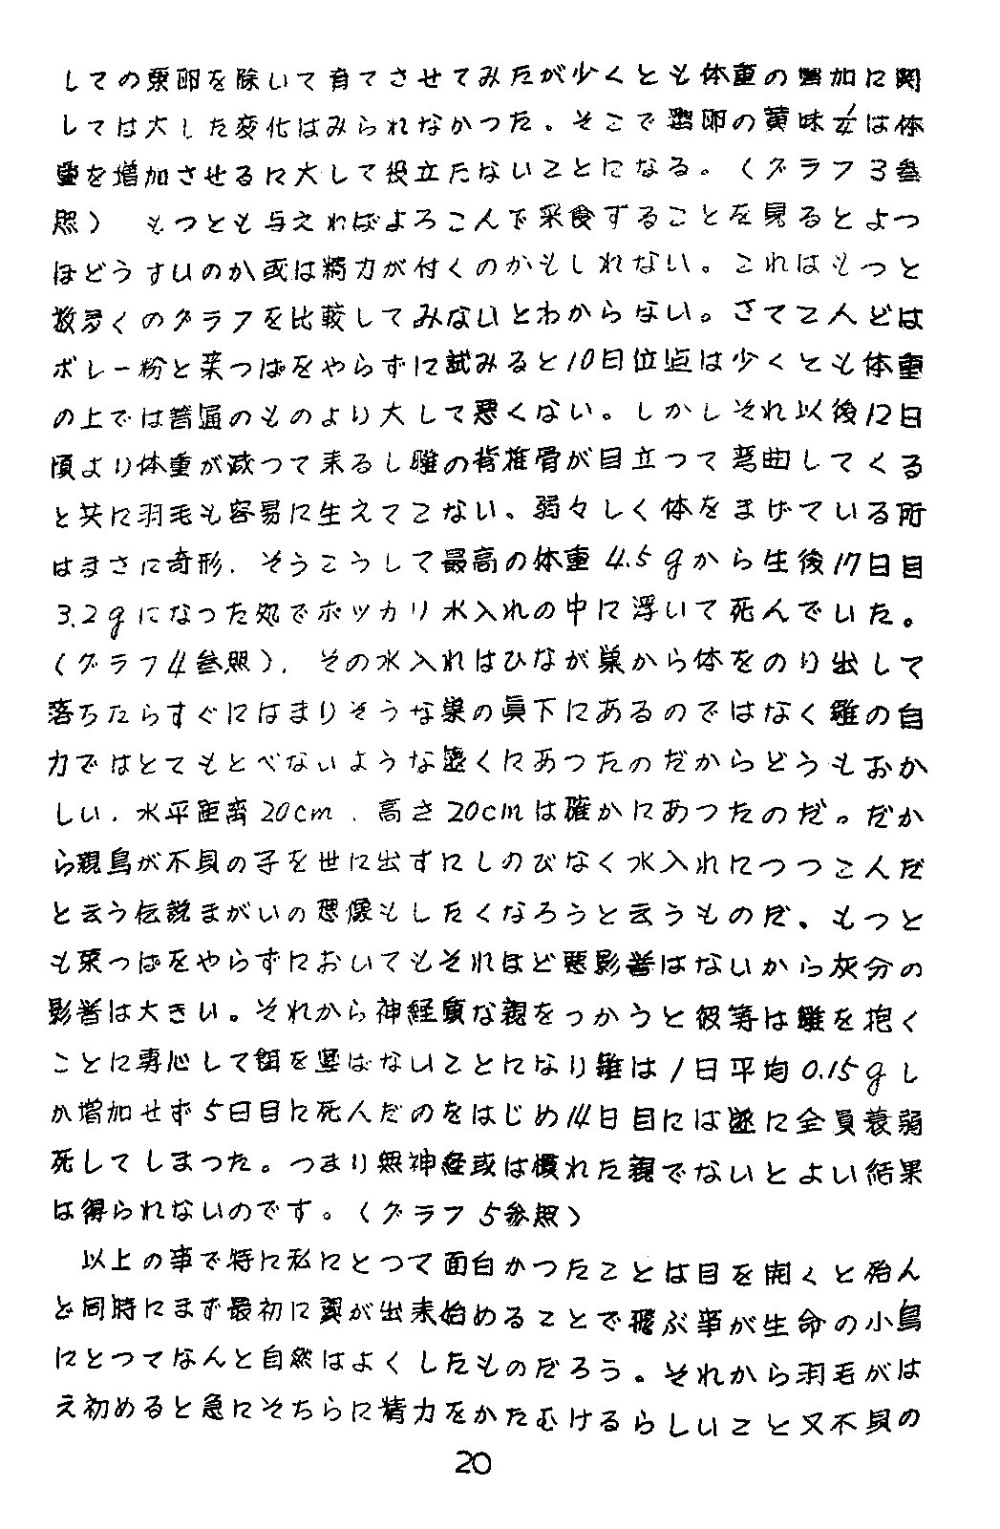 しての粟卵を除いて育てさせてみたが少くとも体重の増加に関
しては大した変化はみられなかつた。そこで鶏卵の黄味だけは体
重を増加させるに大して役立たないことになる。(グラフ3参
照) もつとも与えればよろこんで采食することを見るとよつ
ほどうまいのか或は精力が付くのかもしれない。これはもつと
数多くのグラフを比較してみないとわからない。さてこんどは
ボレー粉と菜つぱをやらずに試みると10日位迄は少くとも体重
の上では普通のものより大して悪くない。しかしそれ以後12日
頃より体重が減つて来るし雛の背椎骨が目立つて弯曲してくる
と共に羽毛も容易に生えてこない、弱々しく体をまげている所
はまさに奇形．そうこうして最高の体重4.5gから生後17日目
3.2gになった処でポッカリ水入れの中に浮いて死んでいた。
(グラフ4参照)．その水入れはひなが巣から体をのり出して
落ちたらすぐにはまりそうな巣の眞下にあるのではなく雛の自
力ではとてもとべないような遠くにあつたのだからどうもおか
しい．水平距離20cm．高さ20cmは確かにあつたのだ。だか
ら親鳥が不具の子を世に出すにしのびなく水入れにつつこんだ
と云う伝説まがいの想像もしたくなろうと云うものだ、もつと
も菜つぱをやらずにおいてもそれほど悪影響はないから灰分の
影響は大きい。それから神経質な親をつかうと彼等は雛を抱く
ことに専心して餌を運ばないことになり雛は1日平均0.15gし
か増加せず5日目に死んだのをはじめ14日目には遂に全員衰弱
死してしまつた。つまり無神経或は慣れた親でないとよい結果
は得られないのです。(グラフ5参照)
以上の事で特に私にとつて面白かつたことは目を開くと殆ん
ど同時にまず最初に翼が出来始めることで飛ぶ事が生命の小鳥
にとつてなんと自然はよくしたものだろう。それから羽毛がは
え初めると急にそちらに精力をかたむけるらしいこと又不具の
20